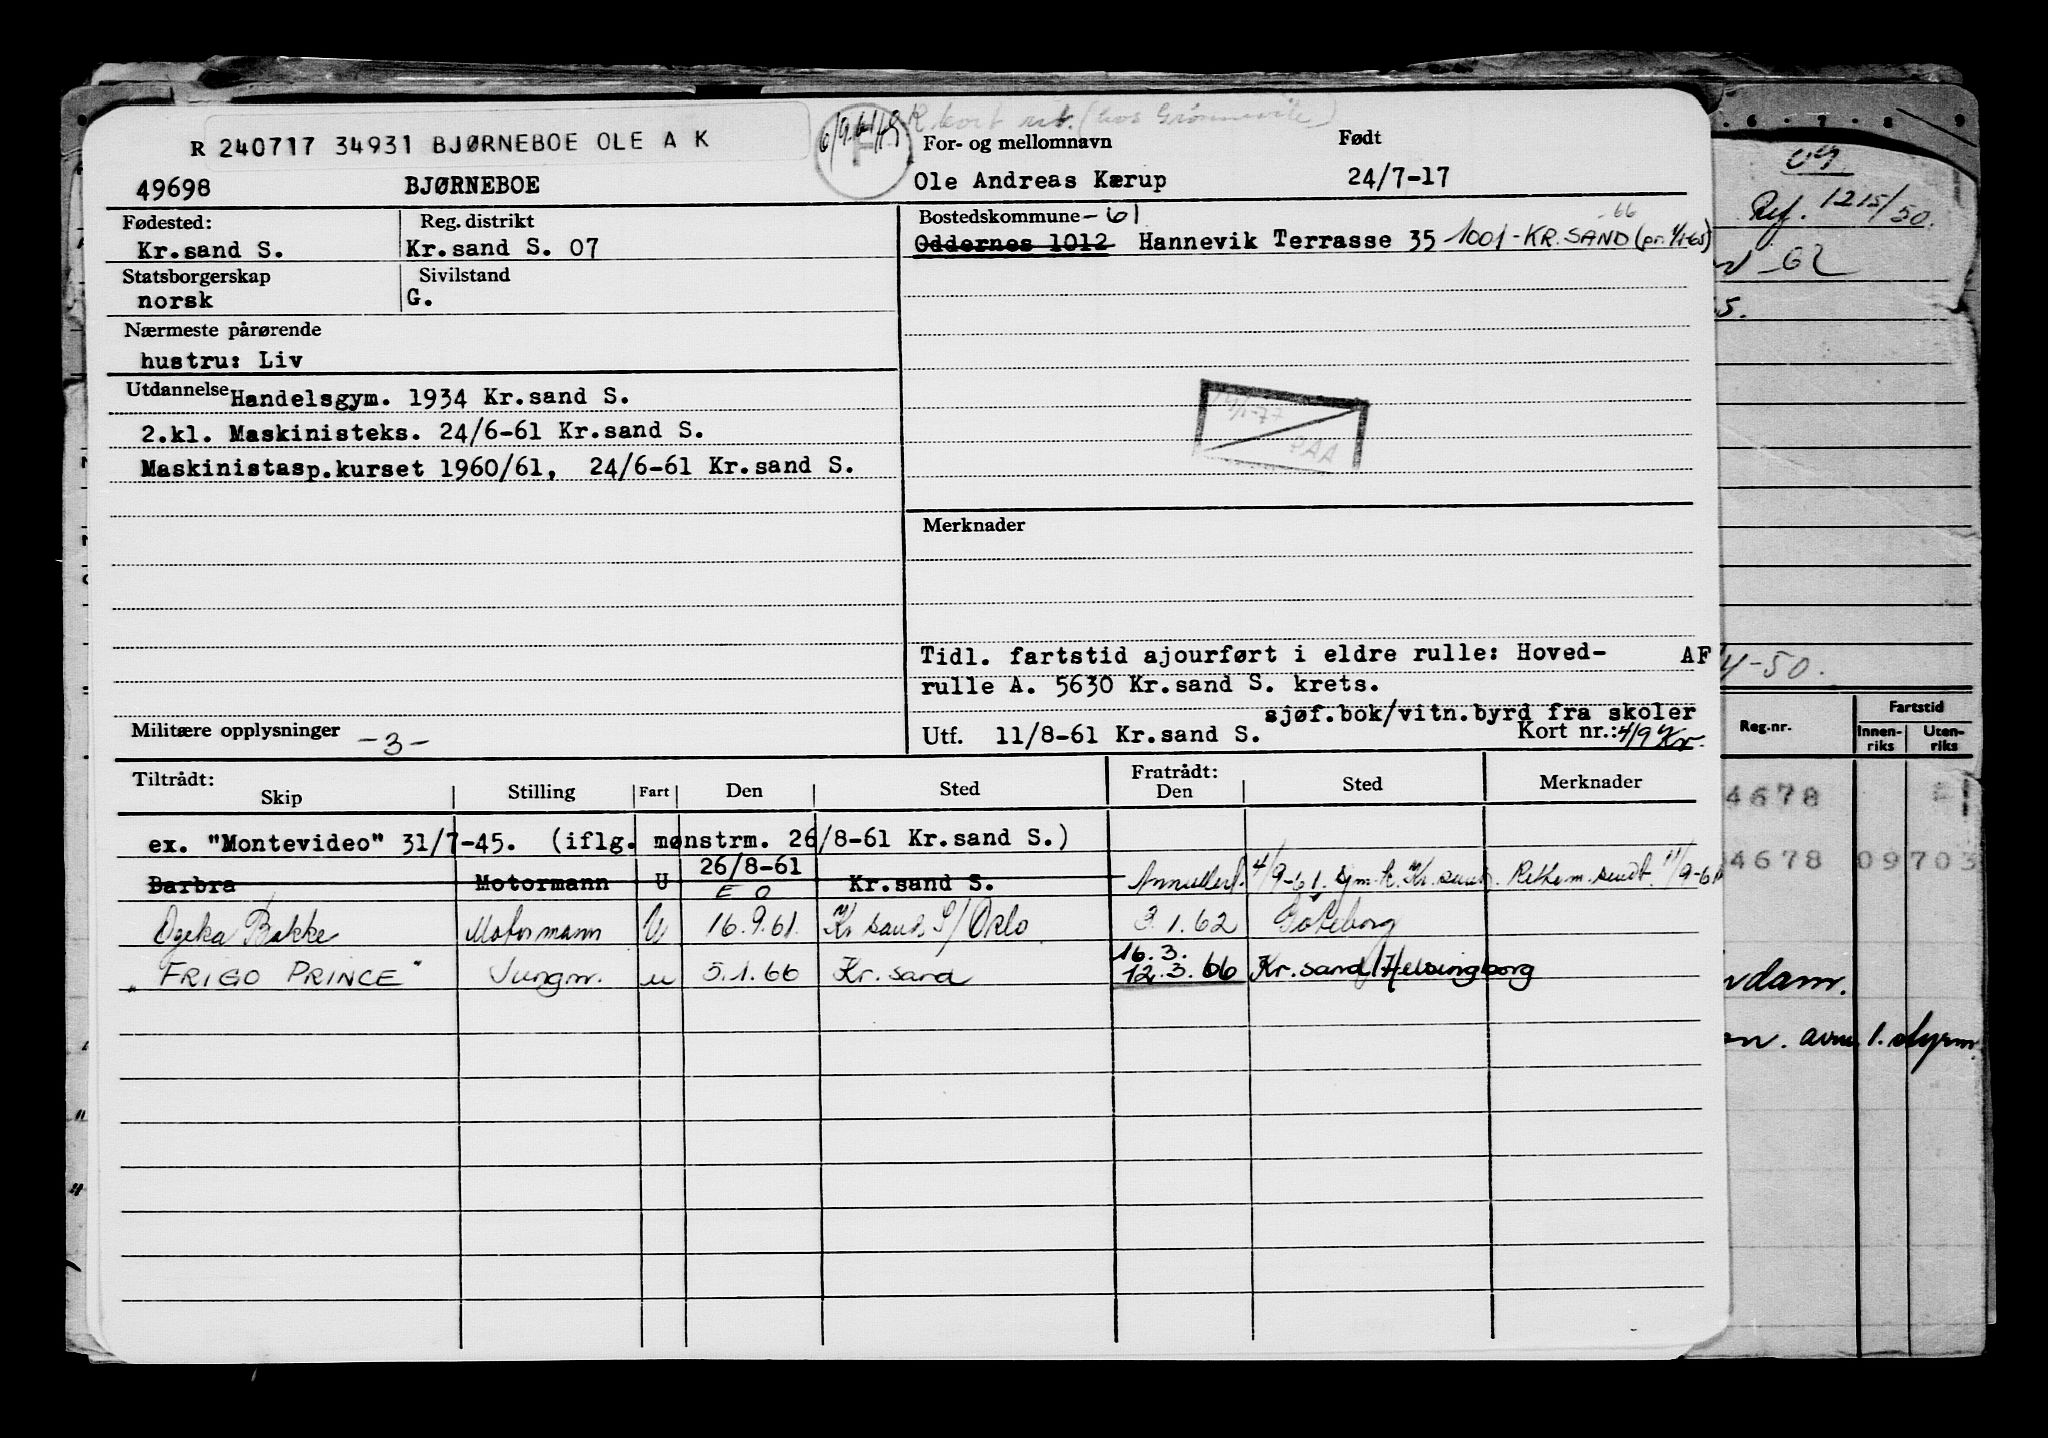 R 240717 34931 BJØRNEBOE OLE A K
6/9-61
R. kort utst. (hos
49698 BJØRNEBOE
For- og mellomnavn
Ole Andreas Kærup
Født
24/7-17
Fødested:
Kr.sand S.
Reg. distrikt
Kr.sand S. 07
Bostedskommune -61
Oddernes 1012 Hannevik Terrasse 35 1001-KR.SAND (pr. 1/1-65)
-66
Statsborgerskap
norsk
Sivilstand
G.
Nærmeste pårørende
hustru: Liv
Utdannelse Handelsgym. 1934 Kr.sand S.
2.kl. Maskinisteks. 24/6-61 Kr.sand S.
Maskinistasp.kurset 1960/61, 24/6-61 Kr.sand S.
PAA
Merknader
Tidl. fartstid ajourført i eldre rulle: Hoved- AF
rulle A. 5630 Kr.sand S. krets.
sjøf.bok/vitn.byrd fra skoler
Utf. 11/8-61 Kr.sand S.
Kort nr.: 4/9 Kr.
Militære opplysninger -3-
Tiltrådt: Fratrådt:
Skip Stilling Fart Den Sted Den Sted Merknader
ex. "Montevideo" 31/7-45. (iflg. mønstrm. 26/8-61 Kr.sand S.)
Barbra Motormann U 26/8-61 Kr.sand S. Annullert. 4/9-61. Sjm.k. Kr.sand. Retkem. sendt 11/9-61
E O
Ogeka Bakke Motormann U 16.9.61. Kr sand S/Oslo 3.1.62 Göteborg
16.3.
"FRIGO PRINCE" Jungm. u 5.1.66 Kr.sand 12.3.66 Kr.sand/Helsingborg
6 7 8 9
Ref. 1215/50.
-62
5.
4-50.
Reg.nr.
Fartstid
Innen-
riks
Uten-
riks
4678
4678 09703
dam.
1. styrm.